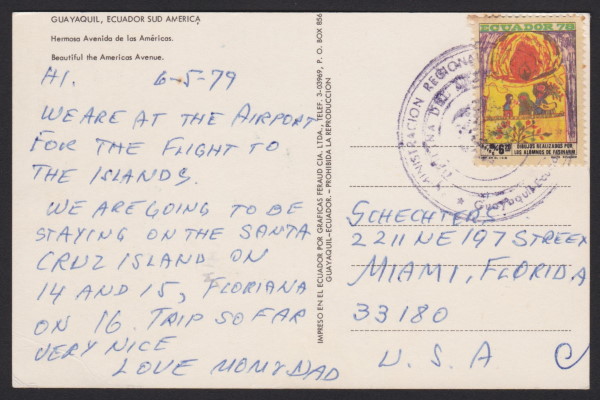 GUAYAQUIL, ECUADOR SUD AMERICA
Hermosa Avenida de las Américas.
Beautiful the Americas Avenue.
HI. 6-5-79
WE ARE AT THE AIRPORT
FOR THE FLIGHT TO
THE ISLANDS.
WE ARE GOING TO BE
STAYING ON THE SANTA
CRUZ ISLAND ON
14 AND 15, FLORIANA
ON 16. TRIP SO FAR
VERY NICE
LOVE MOM Y DAD
IMPRESO EN EL ECUADOR POR GRAFICAS FERAUD CIA. LTDA., TELEF. 3-03969, P. O. BOX 856
GUAYAQUIL-ECUADOR. - PROHIBIDA LA REPRODUCCION
ECUADOR 78
DIBUJOS REALIZADOS POR
LOS ALUMNOS DE FASINARM
MINISTRACION REGIONAL
Guayaquil
SCHECHTERS
2211 NE 197 STREET
MIAMI, FLORIDA
33180
U.S.A